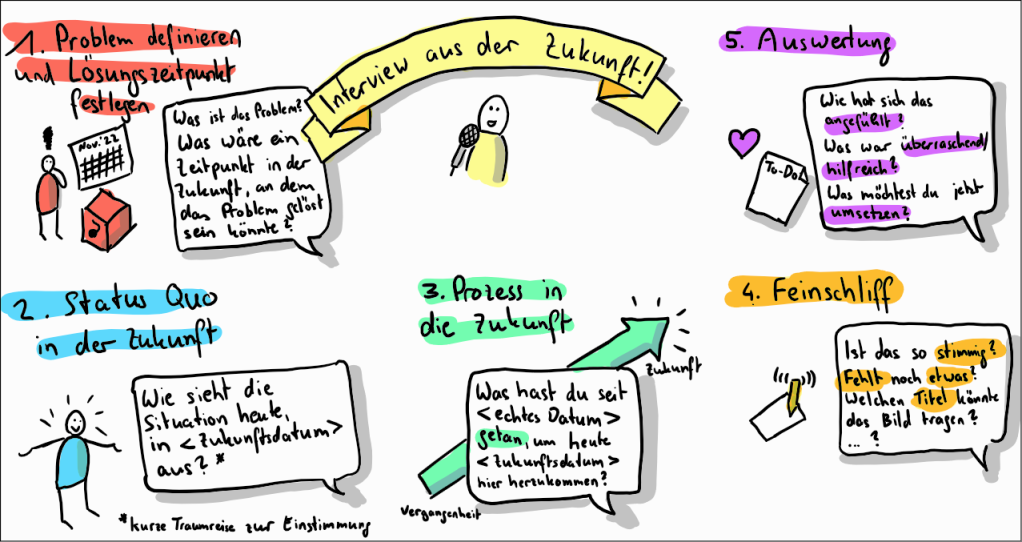 Interview aus der Zukunft!
1. Problem definieren
und Lösungszeitpunkt
festlegen
Nov. '22
Was ist das Problem?
Was wäre ein
Zeitpunkt in der
Zukunft, an dem
das Problem gelöst
sein könnte?
2. Status Quo
in der Zukunft
Wie sieht die
Situation heute,
in <Zukunftsdatum>
aus?*
*kurze Traumreise zur Einstimmung
3. Prozess in
die Zukunft
Zukunft
Was hast du seit
<echtes Datum>
getan, um heute
<Zukunftsdatum>
hier herzukommen?
Vergangenheit
4. Feinschliff
Ist das so stimmig?
Fehlt noch etwas?
Welchen Titel könnte
das Bild tragen?
... ?
5. Auswertung
To-Do
Wie hat sich das
angefühlt?
Was war überraschend/
hilfreich?
Was möchtest du jetzt
umsetzen?